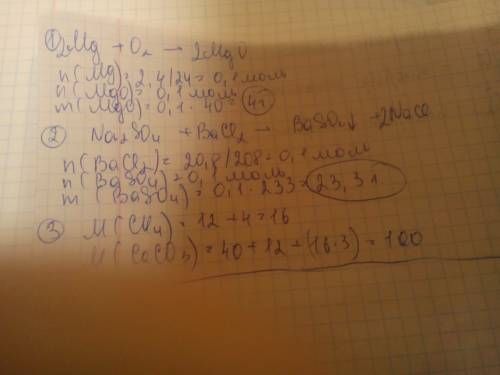 ① 2Mg + O₂ → 2MgO
n(Mg) = 2,4/24 = 0,1 моль
n(MgO) = 0,1 моль
m(MgO) = 0,1 · 40 = 4г
② Na₂SO₄ + BaCl₂ → BaSO₄↓ + 2NaCl
n(BaCl₂) = 20,8/208 = 0,1 моль
n(BaSO₄) = 0,1 моль
m(BaSO₄) = 0,1 · 233 = 23,3г
③ M(CH₄) = 12 + 4 = 16
M(CaCO₃) = 40 + 12 + (16·3) = 100